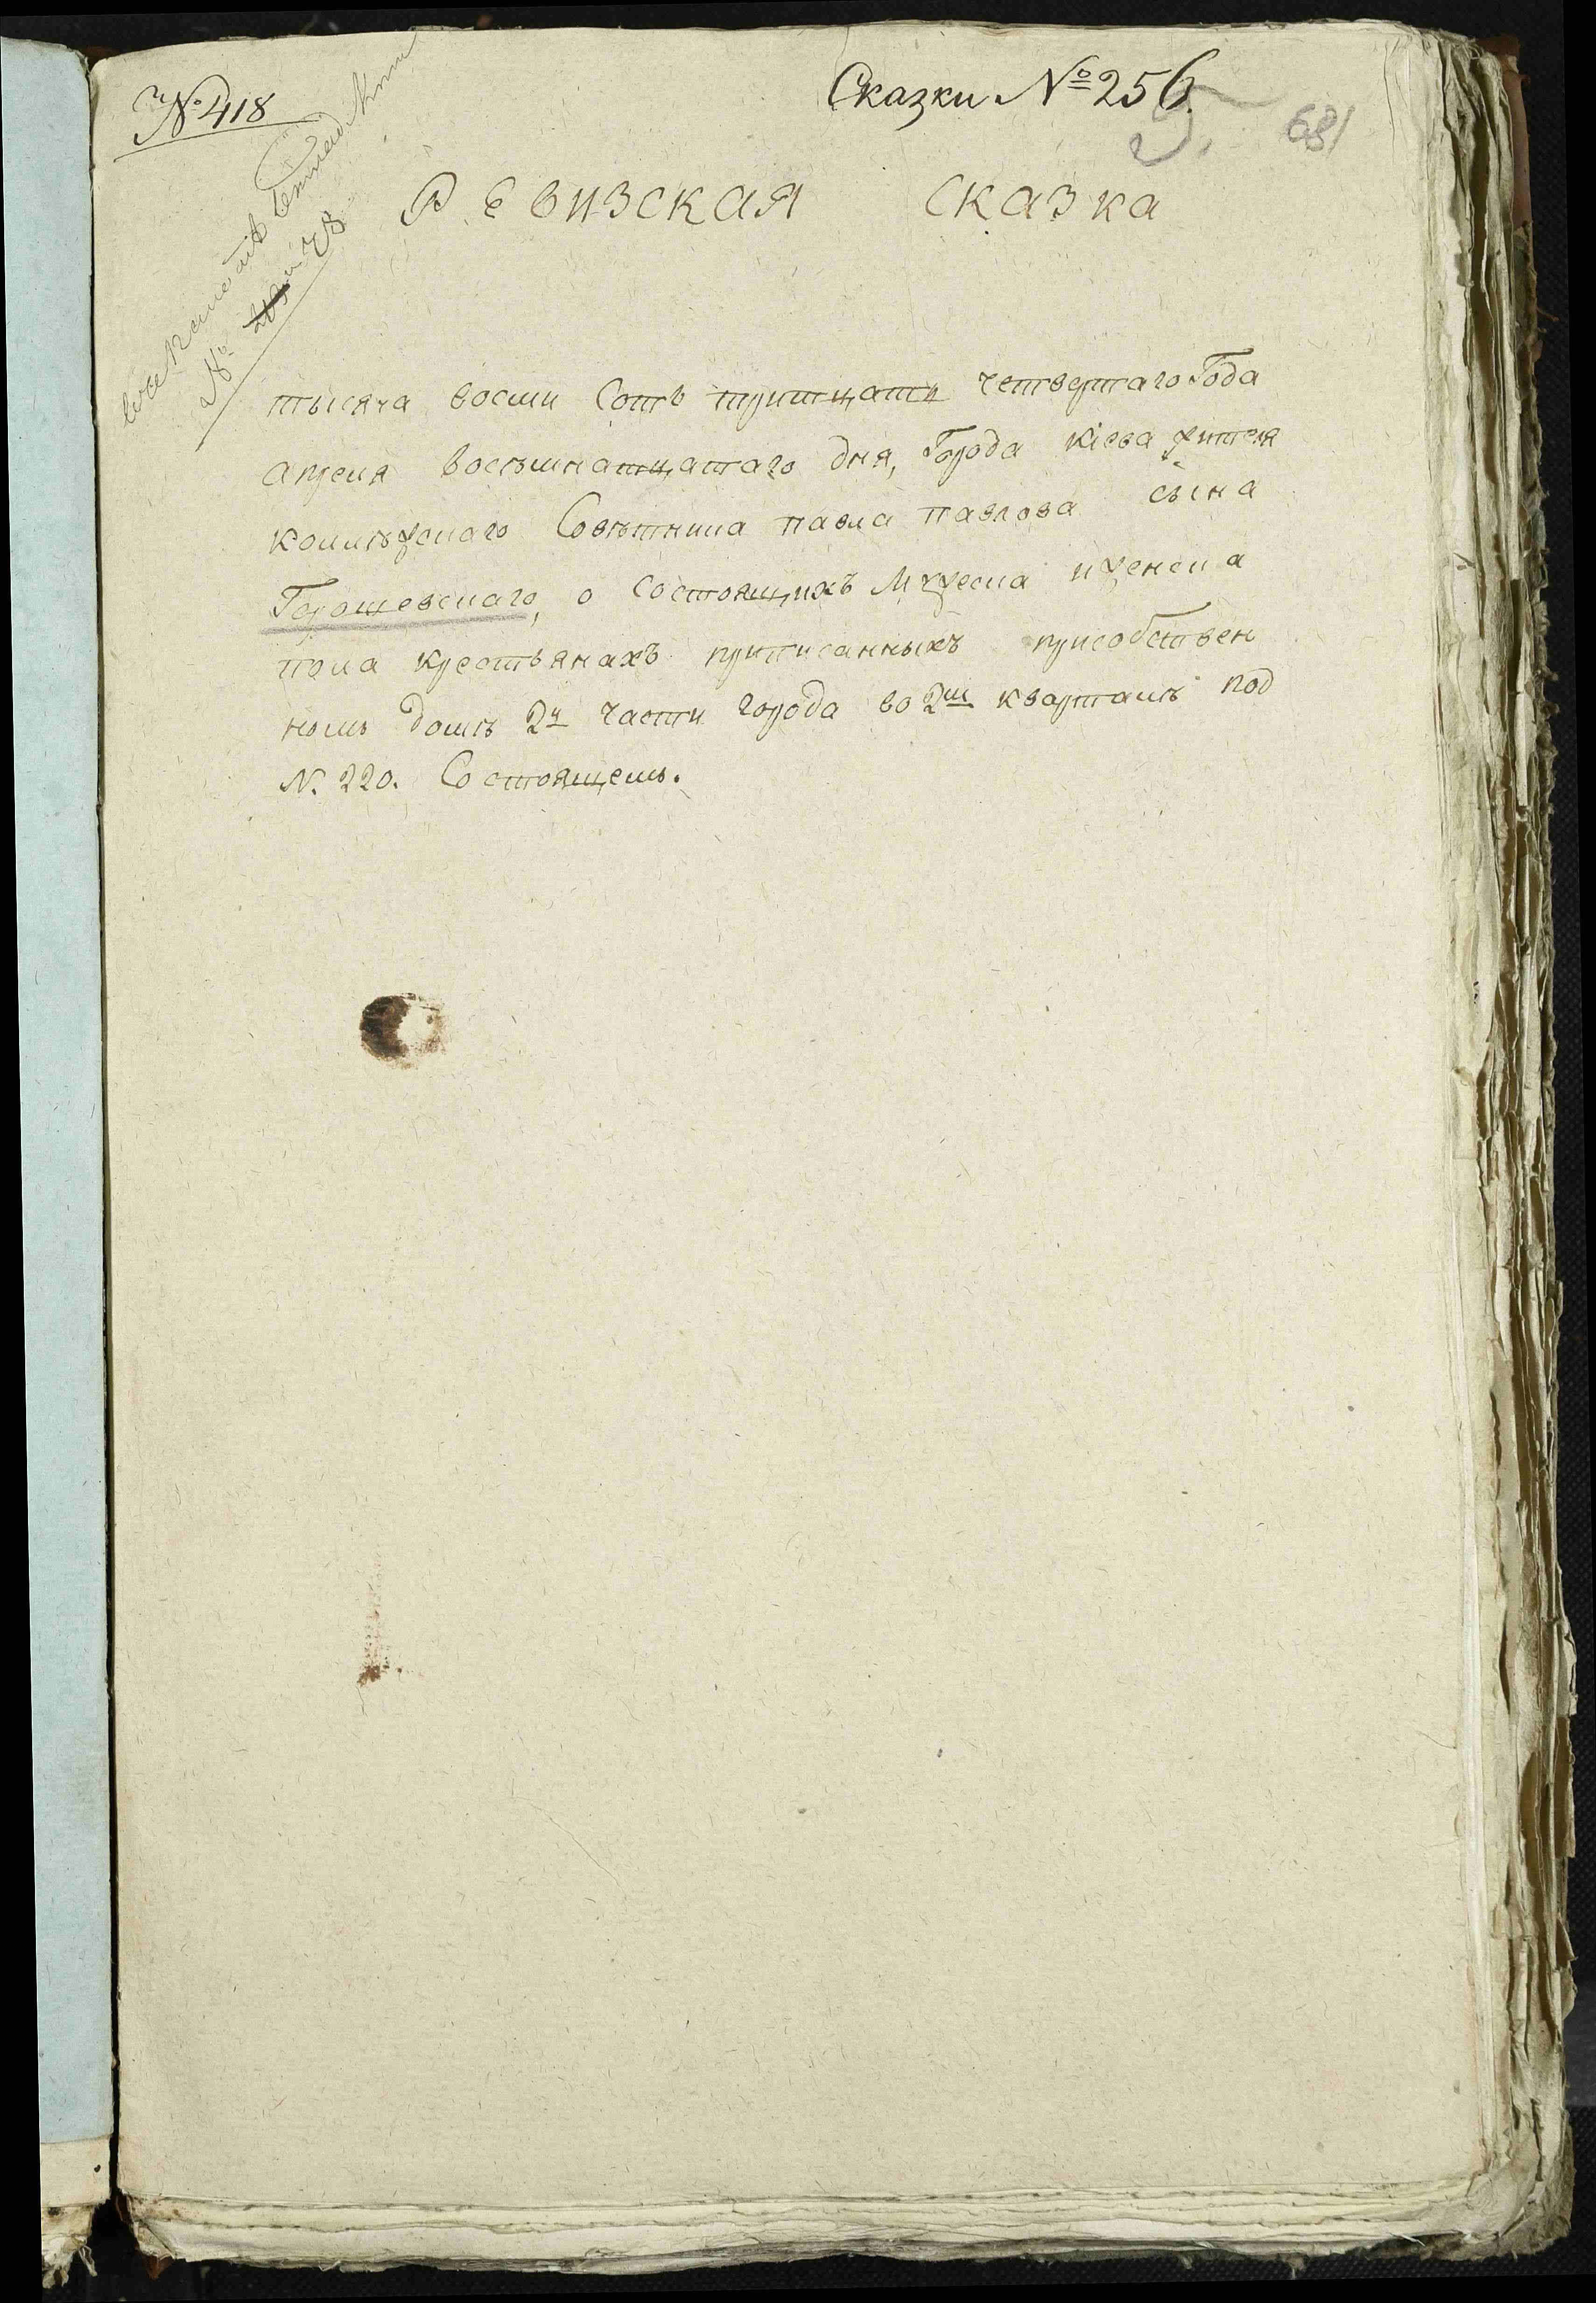 № 418
Сказки № 256.
681
№ 78
РЕВИЗСКАЯ СКАЗКА
тысяча восми Сотъ тритцати четвертаго Года
апреля восѣмнатцатаго дня, Города Кіева жителя
коллѣжскаго Совѣтника павла павлова сына
Горошевскаго, о состоящихъ Мужеска иженска
пола крестьянахъ приписанныхъ присобствен
номъ домѣ 2й части города во 2м кварталѣ под
N. 220. Состоящемъ.